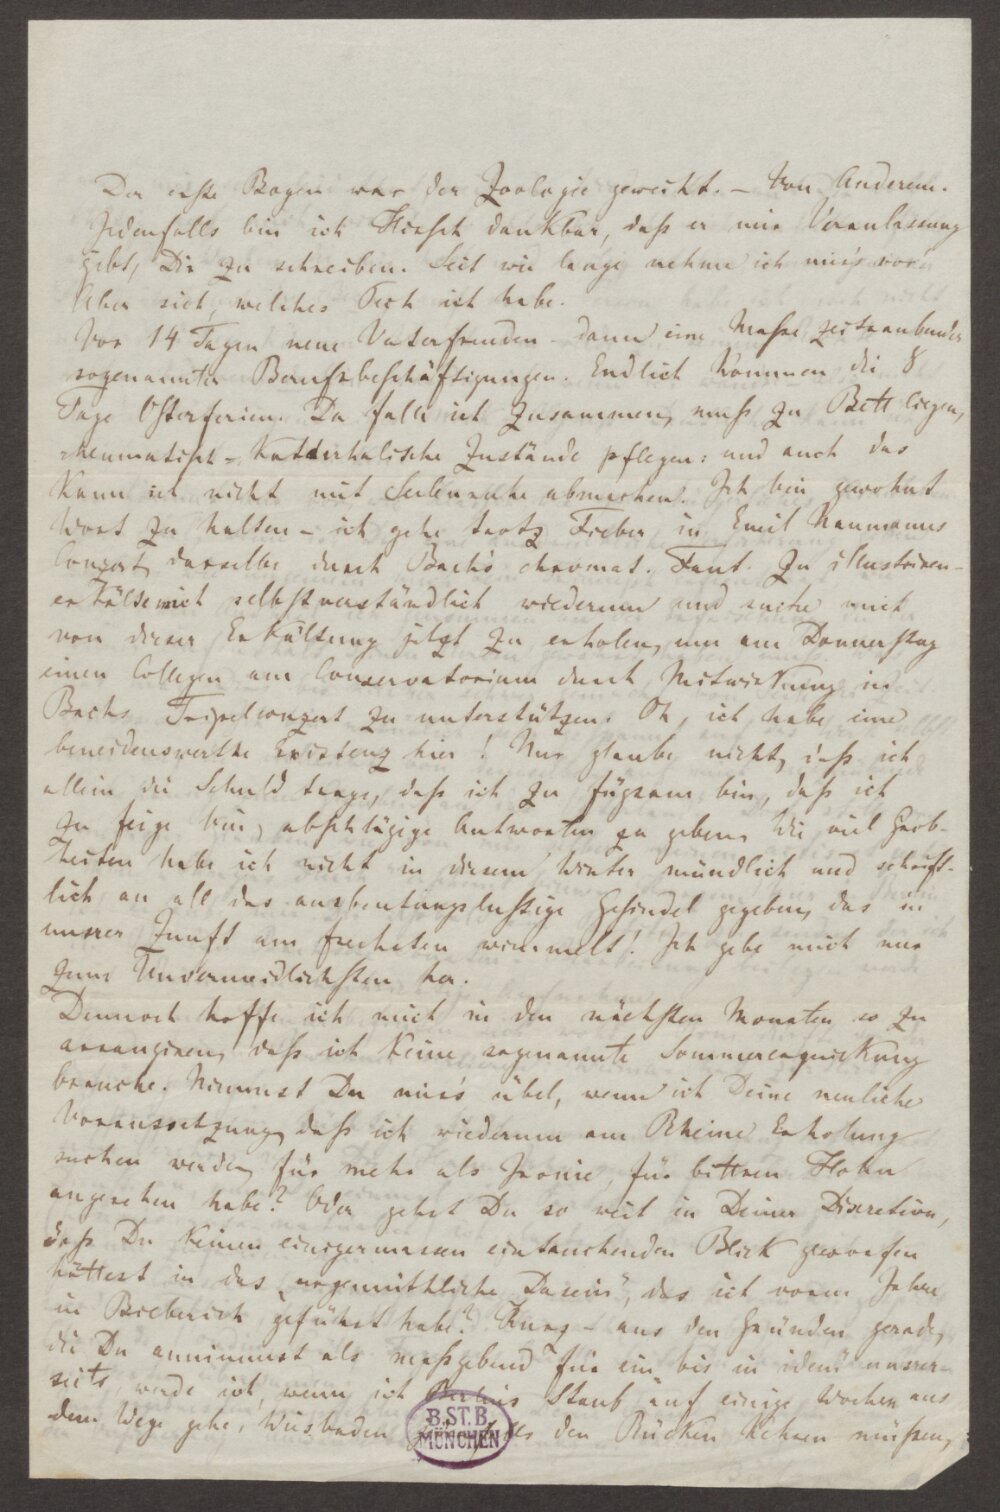 Der erste Bogen war der Zoologie geweiht. – Von Anderem.
Jedenfalls bin ich Hirsch dankbar, daß er mir Veranlassung
giebt, Dir zu schreiben. Seit wie lange nehme ich mirs vor!
Aber sieh, welches Pech ich habe.
Vor 14 Tagen neue Vaterfreuden – dann eine Masse zeitraubender
sogenannter Berufsbeschäftigungen. Endlich kommen die 8
Tage Osterferien. Da falle ich zusammen, muß zu Bett liegen,
rheumatisch-katarrhalische Zustände pflegen: und auch das
kann ich nicht mit Seelenruhe abmachen. Ich bin gewohnt
Wort zu halten – ich gehe trotz Fieber in Emil Naumanns
Conzert, dasselbe durch Bach's chromat. Fant. zu illustriren –
erkälte mich selbstverständlich wiederum und suche mich
von dieser Erkältung jetzt zu erholen, um am Donnerstag
einen Collegen am Conservatorium durch Mitwirkung in
Bachs Tripelconzert zu unterstützen. Oh, ich habe eine
beneidenswerthe Existenz hier! Nur glaube nicht, daß ich
allein die Schuld trage, daß ich zu fügsam bin, daß ich
zu feige bin, abschlägige Antworten zu geben. Wie viel Grob-
heiten habe ich nicht in diesem Winter mündlich und schrift-
lich an all das ausbeutungslustige Gesindel gegeben, das in
unsrer Zunft am frechsten wimmelt! Ich gebe mich nur
zum Unvermeidlichsten her.
Dennoch hoffe ich mich in den nächsten Monaten so zu
arrangiren, daß ich keine sogenannte Sommererquickung
brauche. Nimmst Du mirs übel, wenn ich Deine neuliche
Voraussetzung, daß ich wiederum am Rheine Erholung
suchen werde, für mehr als Ironie, für bittren Hohn
angesehen habe? Oder gehst Du so weit in Deiner Discretion,
daß Du keinen einigermassen eintauchenden Blick geworfen
hättest in das „urgemüthliche Dasein", das ich voren Jahre
in Bieberich geführt habe? Kurz – aus den Gründen gerade,
die Du annimmst als maßgebend für ein bis in idem unsrer-
seits, werde ich, wenn ich Berlins Staub auf einige Wochen aus
dem Wege gehe, Wiesbaden den Rücken kehren müssen,
B.ST.B.
MÜNCHEN